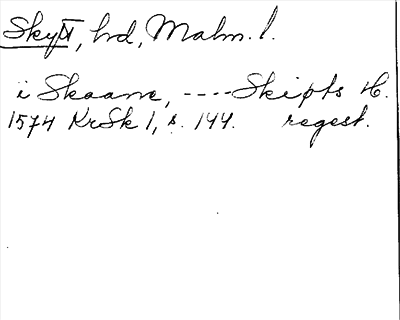 Skytt, hd, Malm. l.
i Skaane, ---- Skipts H.
1574 KrSk 1, s. 144. regest.